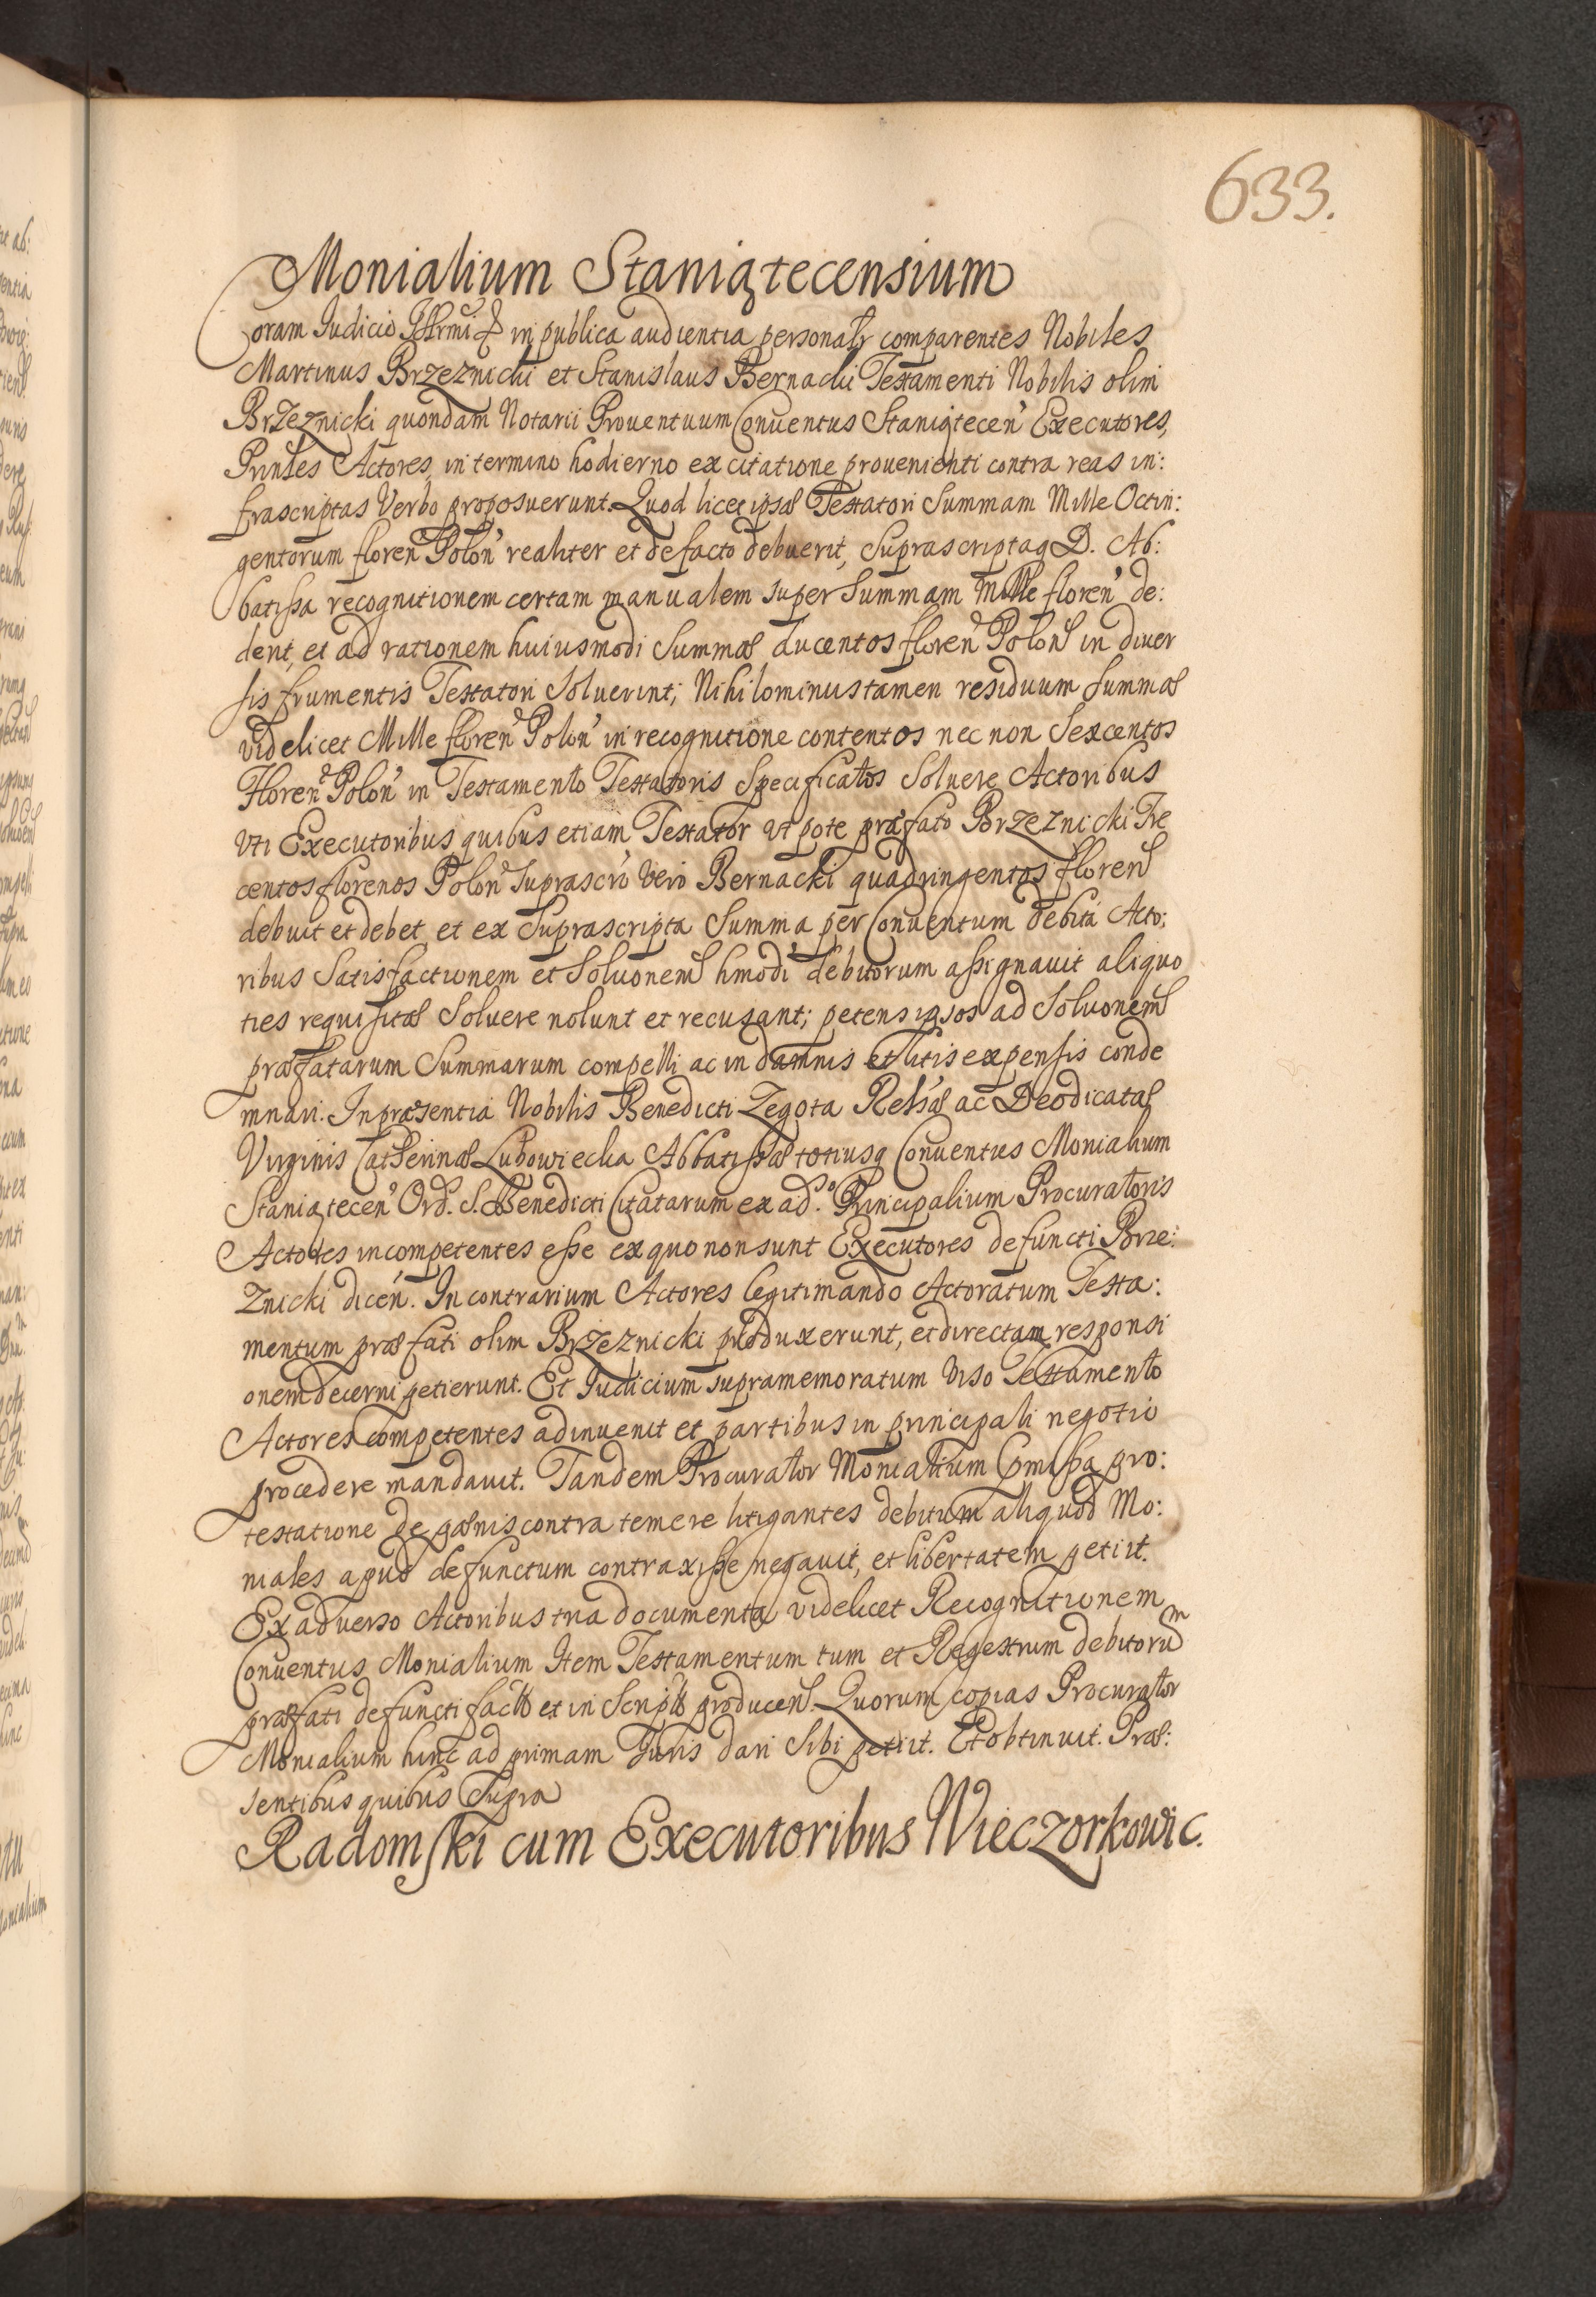 633.
Monialium Staniątecensium
Coram Iudicio in publica audientia personalr comparentes Nobiles
Martinus Brzeznicki et Stanislaus Bernacki Testamenti Nobilis olim
Brzeznicki quondam Notarii Prouentuum Conuentus Staniątecen̄ Executores,
Prīntes Actores, in termino hodierno ex citatione prouenienti contra reas in:
frascriptas Verbo proposuerunt. Quod licet ipsæ Testatori Summam Mille Octin:
gentorum floren̄ Polon̄ realiter et de facto debuerit, Suprascriptaq D. Ab:
batissa recognitionem certam manualem super Summam Mille floren̄ de:
derit, et ad rationem huiusmodi Summæ ducentos floren̄ Polon̄ in diuer
sis frumentis Testatori Soluerint; Nihilominus tamen residuum summæ
videlicet Mille floren̄ Polon̄ in recognitione contentos nec non Sexcentos
Floren̄ Polon̄ in Testamento Testatoris Specificatos Soluere Actoribus
vti Executoribus quibus etiam Testator vt pote præfato Brzeznicki Tre
centos florenos Polon̄ suprascrō vero Bernacki quadringentos floren̄
debuit et debet et ex Suprascripta Summa per Conuentum debita Acto:
ribus Satisfactionem et Soluōnem hmōdi debitorum assignauit aliquo
ties requisitæ Soluere nolunt et recusant; petens ipsos ad Soluōnem
præfatarum Summarum compelli ac in damnis et litis expensis conde
mnari. In præsentia Nobilis Benedicti Zegota Relsæ ac Deodicatæ
Virginis Catherinæ Lubowiecka Abbatissæ totiusq Conuentus Monialium
Staniątecen̄ Ord. S. Benedicti Citatarum ex ad.o Principalium Procuratoris
Actores incompetentes esse ex quo non sunt Executores defuncti Brze:
znicki dicen̄. In contrarium Actores legitimando Actoratum Testa:
mentum præfati olim Brzeznicki produxerunt, et directam responsi
onem decerni petierunt. Et Iudicium supramemoratum Viso Testamento
Actores competentes adinuenit et partibus in principali negotio
procedere mandauit. Tandem Procurator Monialium Cōmissa pro:
testatione de pænis contra temere litigantes debitum aliquod Mo:
niales apud defunctum contraxisse negauit, et libertatem petiit.
Ex aduerso Actoribus tria documenta videlicet Recognitionem
Conuentus Monialium Item Testamentum tum et Regestrum debitorum
præfati defuncti facto et in Scripto producen̄. Quorum copias Procurator
Monialium hinc ad primam Iuris dari Sibi petiit. Et obtinuit. Præ:
sentibus quibus Supra
Radomski cum Executoribus Wieczorkowic.